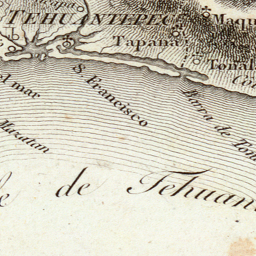 TEHUANTEPEC
Maqu
Tapana
Tonal
el mar
S. Francisco
Barra de Ton
Mazatan
de Tehuan